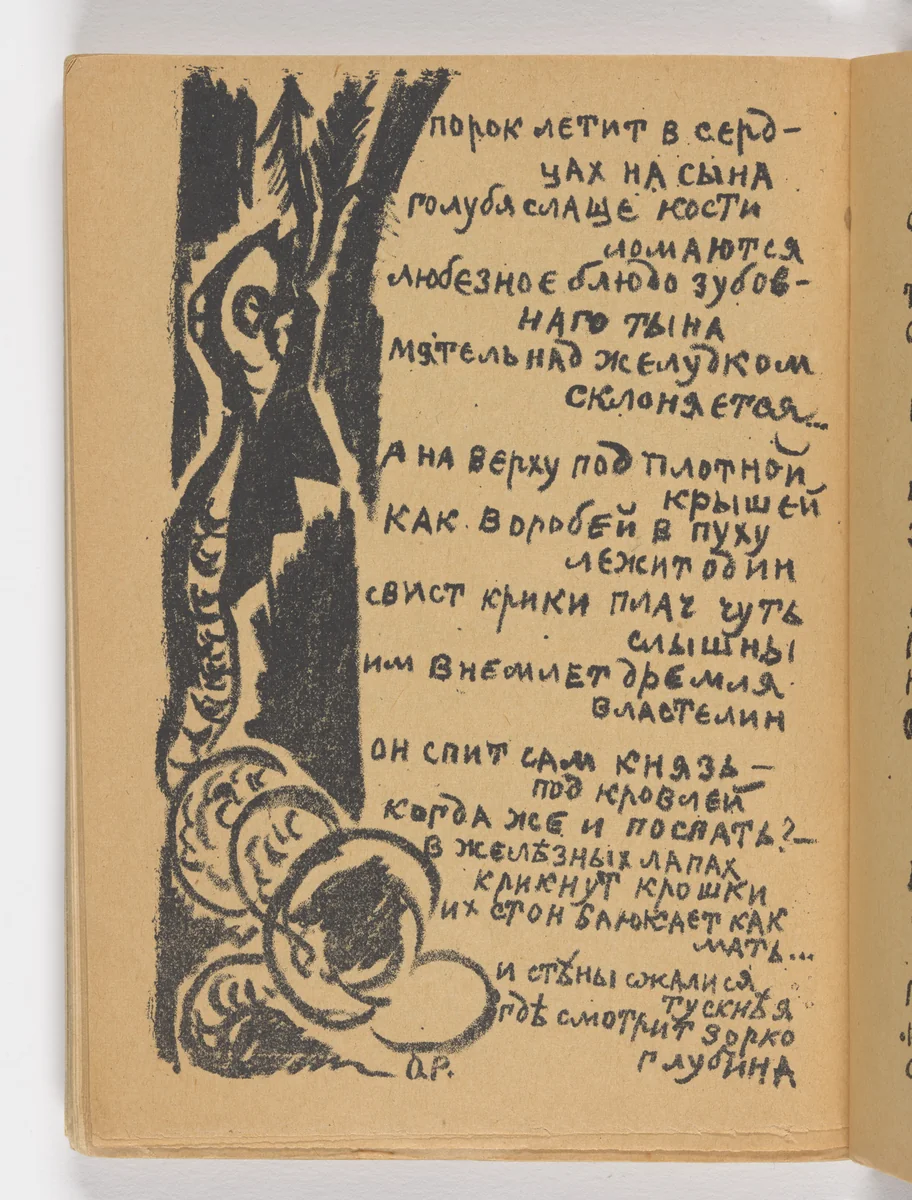 порок летит в серд-
цах на сына
голубя слаще кости
ломаются
любезное блюдо зубов-
наго тына
мятель над желудком
склоняется...
А на верху под плотной
крышей
как воробей в пуху
лежит один
свист крики плач чуть
слышны
им внемлет дремля
властелин
он спит сам князь –
под кровлей
когда же и поспать? –
в желѣзных лапах
крикнут крошки
их стон баюкает как
мать...
и стѣны сжалися
тускнѣя
гдѣ смотрит зорко
глубина
О.Р.